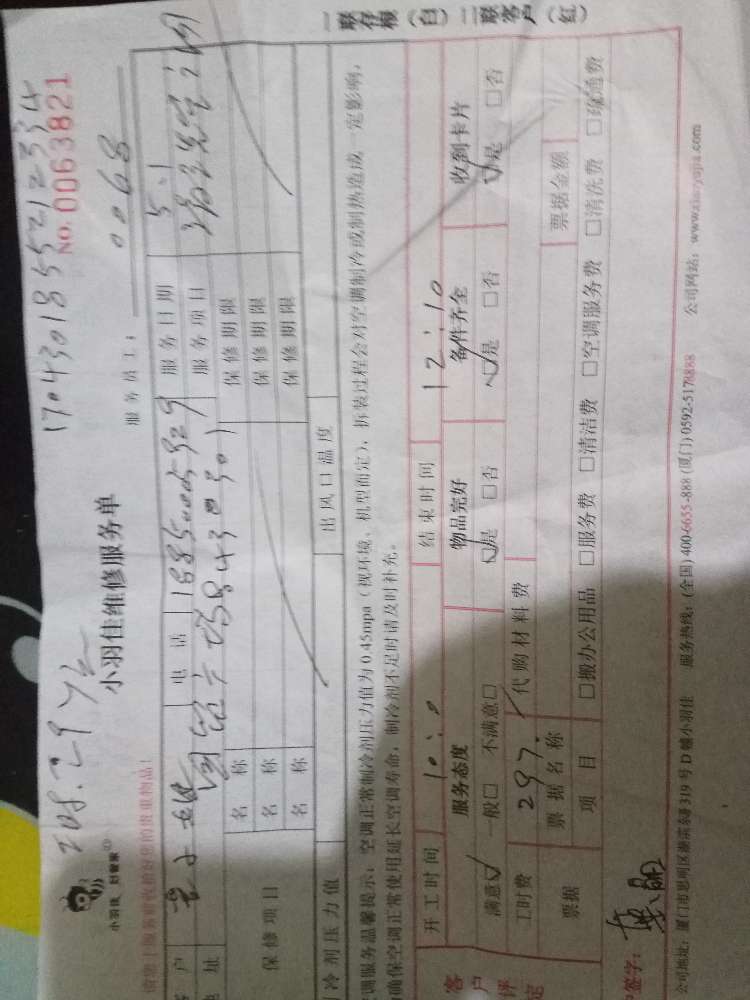 一联存根（白） 二联客户（红）
1704301855212334
NO. 0063821
208.29 元
小羽佳 好管家
小羽佳维修服务单
服务员工： 0068
请您于服务前收拾好您的贵重物品！
客 户
电 话
服务日期 5.1
地 址
服务项目
保修项目
名 称
保修期限
名 称
保修期限
名 称
保修期限
制冷剂压力值
出风口温度
空调服务温馨提示：空调正常制冷剂压力值为0.45mpa（视环境、机型而定），拆装过程会对空调制冷或制热造成一定影响，
为确保空调正常使用延长空调寿命，制冷剂不足时请及时补充。
开工时间 10:0
结束时间 12:10
服务态度
物品完好
备件齐全
收到卡片
满意☑ 一般□ 不满意□
☑是 □否
☑是 □否
☑是 □否
工时费 297.
代购材料费
票据
票据名称
票据金额
项 目
□搬办公用品 □服务费 □清洁费 □空调服务费 □清洗费 □疏通费
签字：
公司地址：厦门市思明区湖滨东路319号D幢小羽佳 服务热线：(全国) 400-6655-888 (厦门) 0592-5178888 公司网站：www.xiaoyujia.com